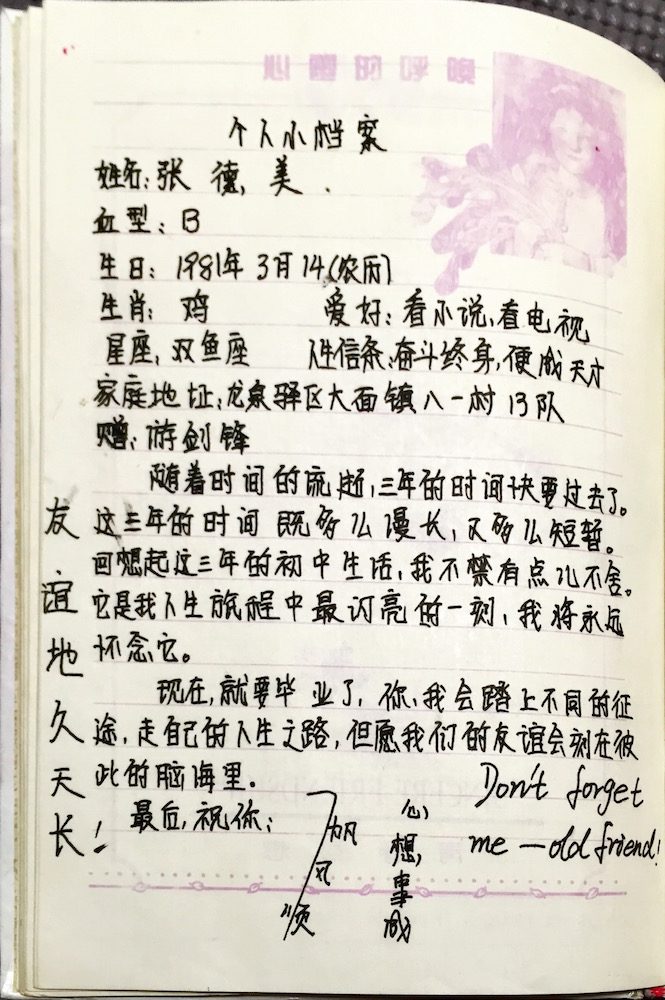 个人小档案
姓名:张德美.
血型:B
生日:1981年3月14(农历)
生肖:鸡 爱好:看小说,看电视
星座:双鱼座 人生信条:奋斗终身,便成天才
家庭地址:龙泉驿区大面镇八一村13队
赠:游剑锋
随着时间的流逝,三年的时间快要过去了。
这三年的时间既多么漫长,又多么短暂。
回想起这三年的初中生活,我不禁有点儿不舍。
它是我人生旅程中最闪亮的一刻,我将永远
怀念它。
现在,就要毕业了,你、我会踏上不同的征
途,走自己的人生之路,但愿我们的友谊会刻在彼
此的脑海里.
最后,祝你:
一帆风顺
心想事成
Don't forget
me —old friend!
友谊地久天长!